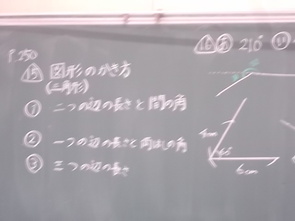 P.250
⑮ 図形のかき方
(三角形)
① 二つの辺の長さと間の角
② 一つの辺の長さと両はしの角
③ 三つの辺の長さ
⑯ あ 210°
6cm